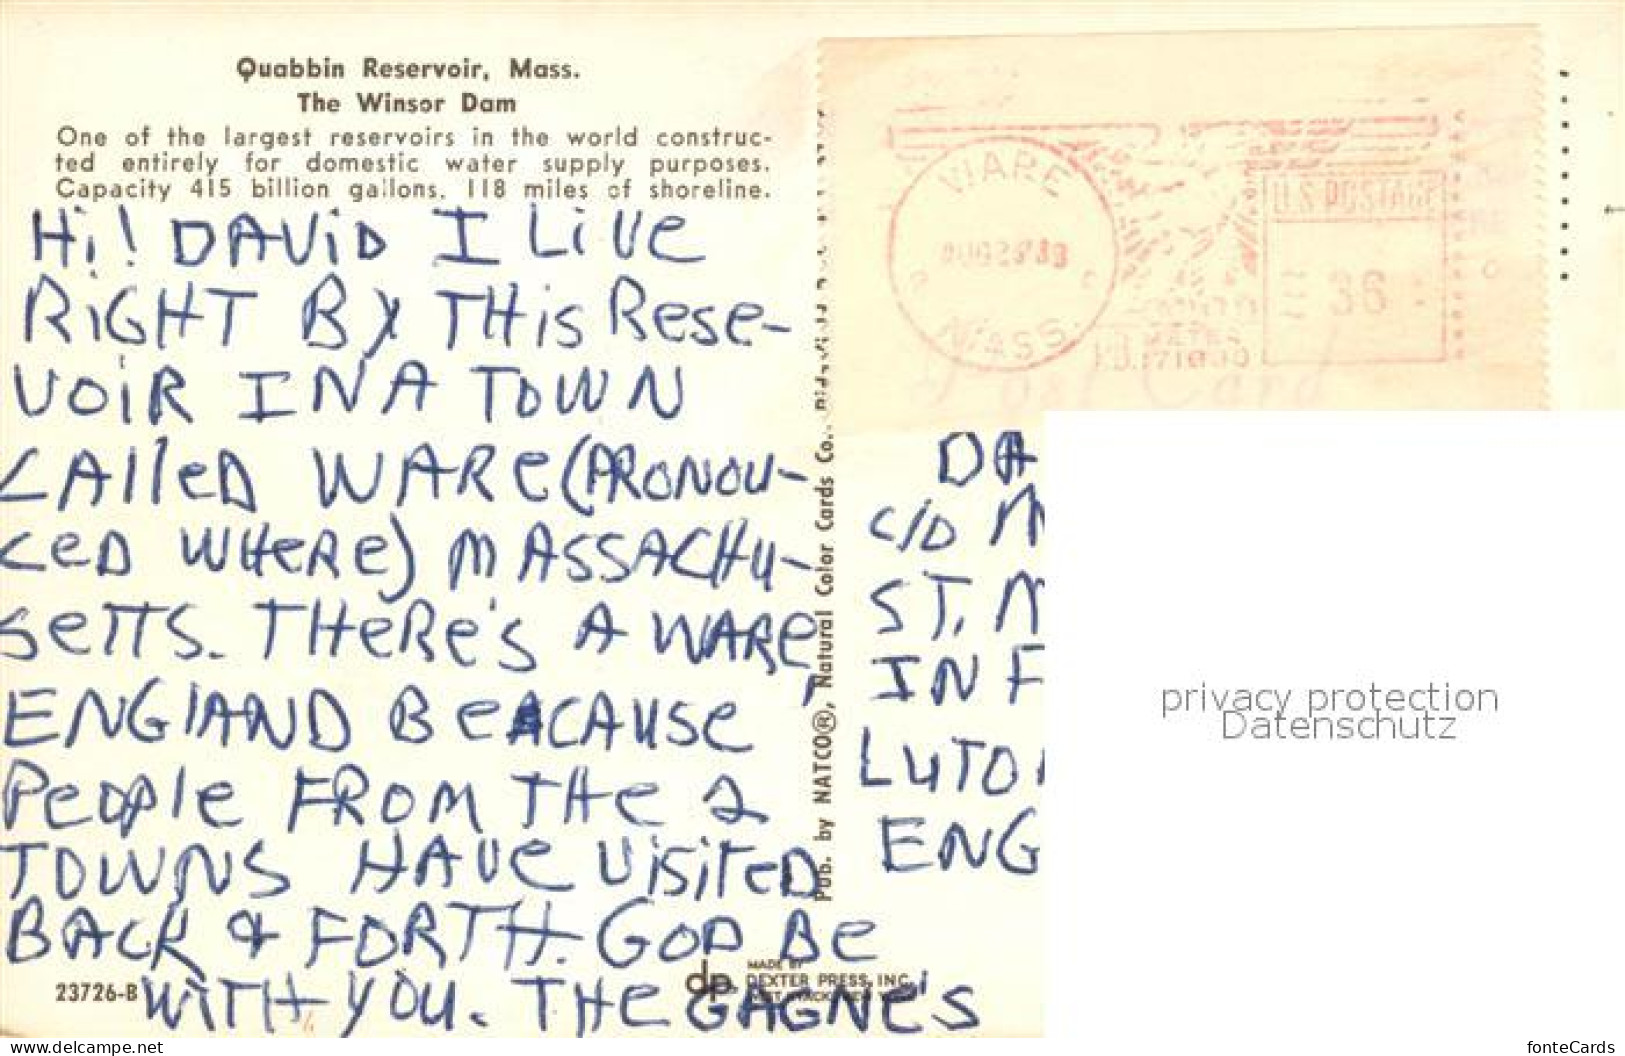 Quabbin Reservoir, Mass.
The Winsor Dam
One of the largest reservoirs in the world construc-
ted entirely for domestic water supply purposes.
Capacity 415 billion gallons. 118 miles of shoreline.
Hi! DAViD I LiVe
RiGHT BY THis Rese-
VOiR IN A TOWN
CAlleD WARe (PRONOU-
CeD WHeRe) MASSACHU-
SeTTS. THeRe's A WARe,
ENGlAND BeACAUSe
PeOPle FROM THe 2
TOWNS HAVe ViSiTeD
BACK & FORTH. GOD Be
WiTH YOU. THe GAGNe's
23726-B
dp
MADE BY
DEXTER PRESS, INC.
Pub. by NATCO®, Natural Color Cards Co.,
WARE
MASS.
U.S. POSTAGE
36
METER
Post Card
DA
C/O M
ST. M
IN F
LUTO
ENG
privacy protection
Datenschutz
https://www.delcampe.net
fonteCards